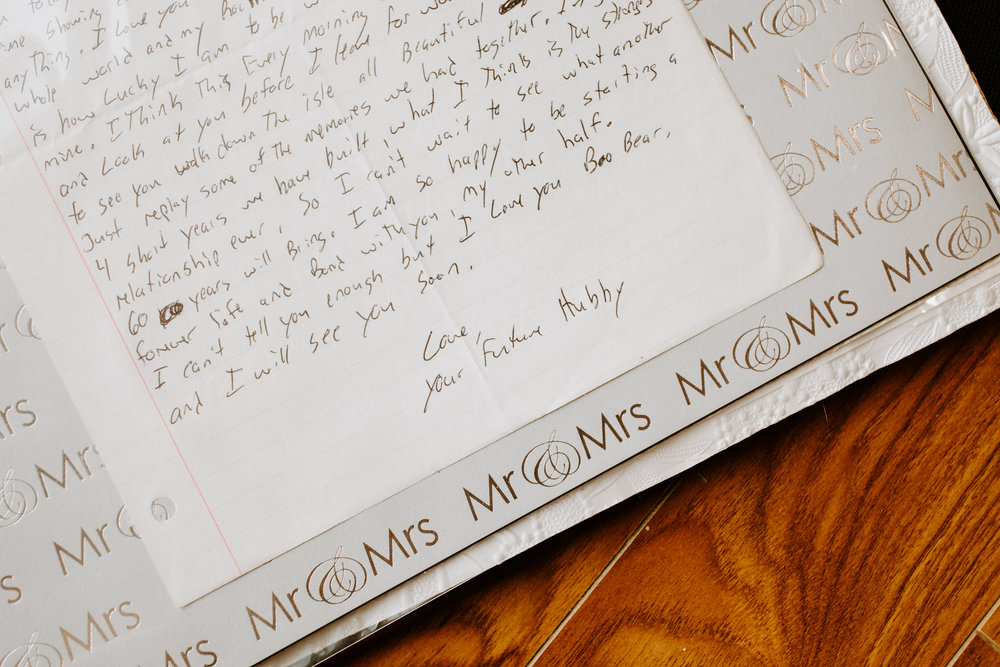 me showing
any thing. I Love you
whole world and my
is how Lucky I am to be
mine. I Think This Every morning
and Look at you before I leave for
to see you walk down the isle all Beautiful
Just replay some of the memories we had together.
4 short years we have built, what I Think is the strongest
relationship ever, So I can't wait to see what another
60 years will Bring. I am so happy to be starting a
forever life and Bond with you, my other half.
I can't tell you enough but I Love you Boo Bear,
and I will see you soon.
Love,
your Future Hubby
Mr & Mrs
Mr & Mrs
Mr & Mrs
Mr & Mrs
Mr & Mrs
Mr &
Mr &
& Mrs
Mr & Mrs
Mr & Mrs
rs
Mr
Mr
Mrs
Mrs